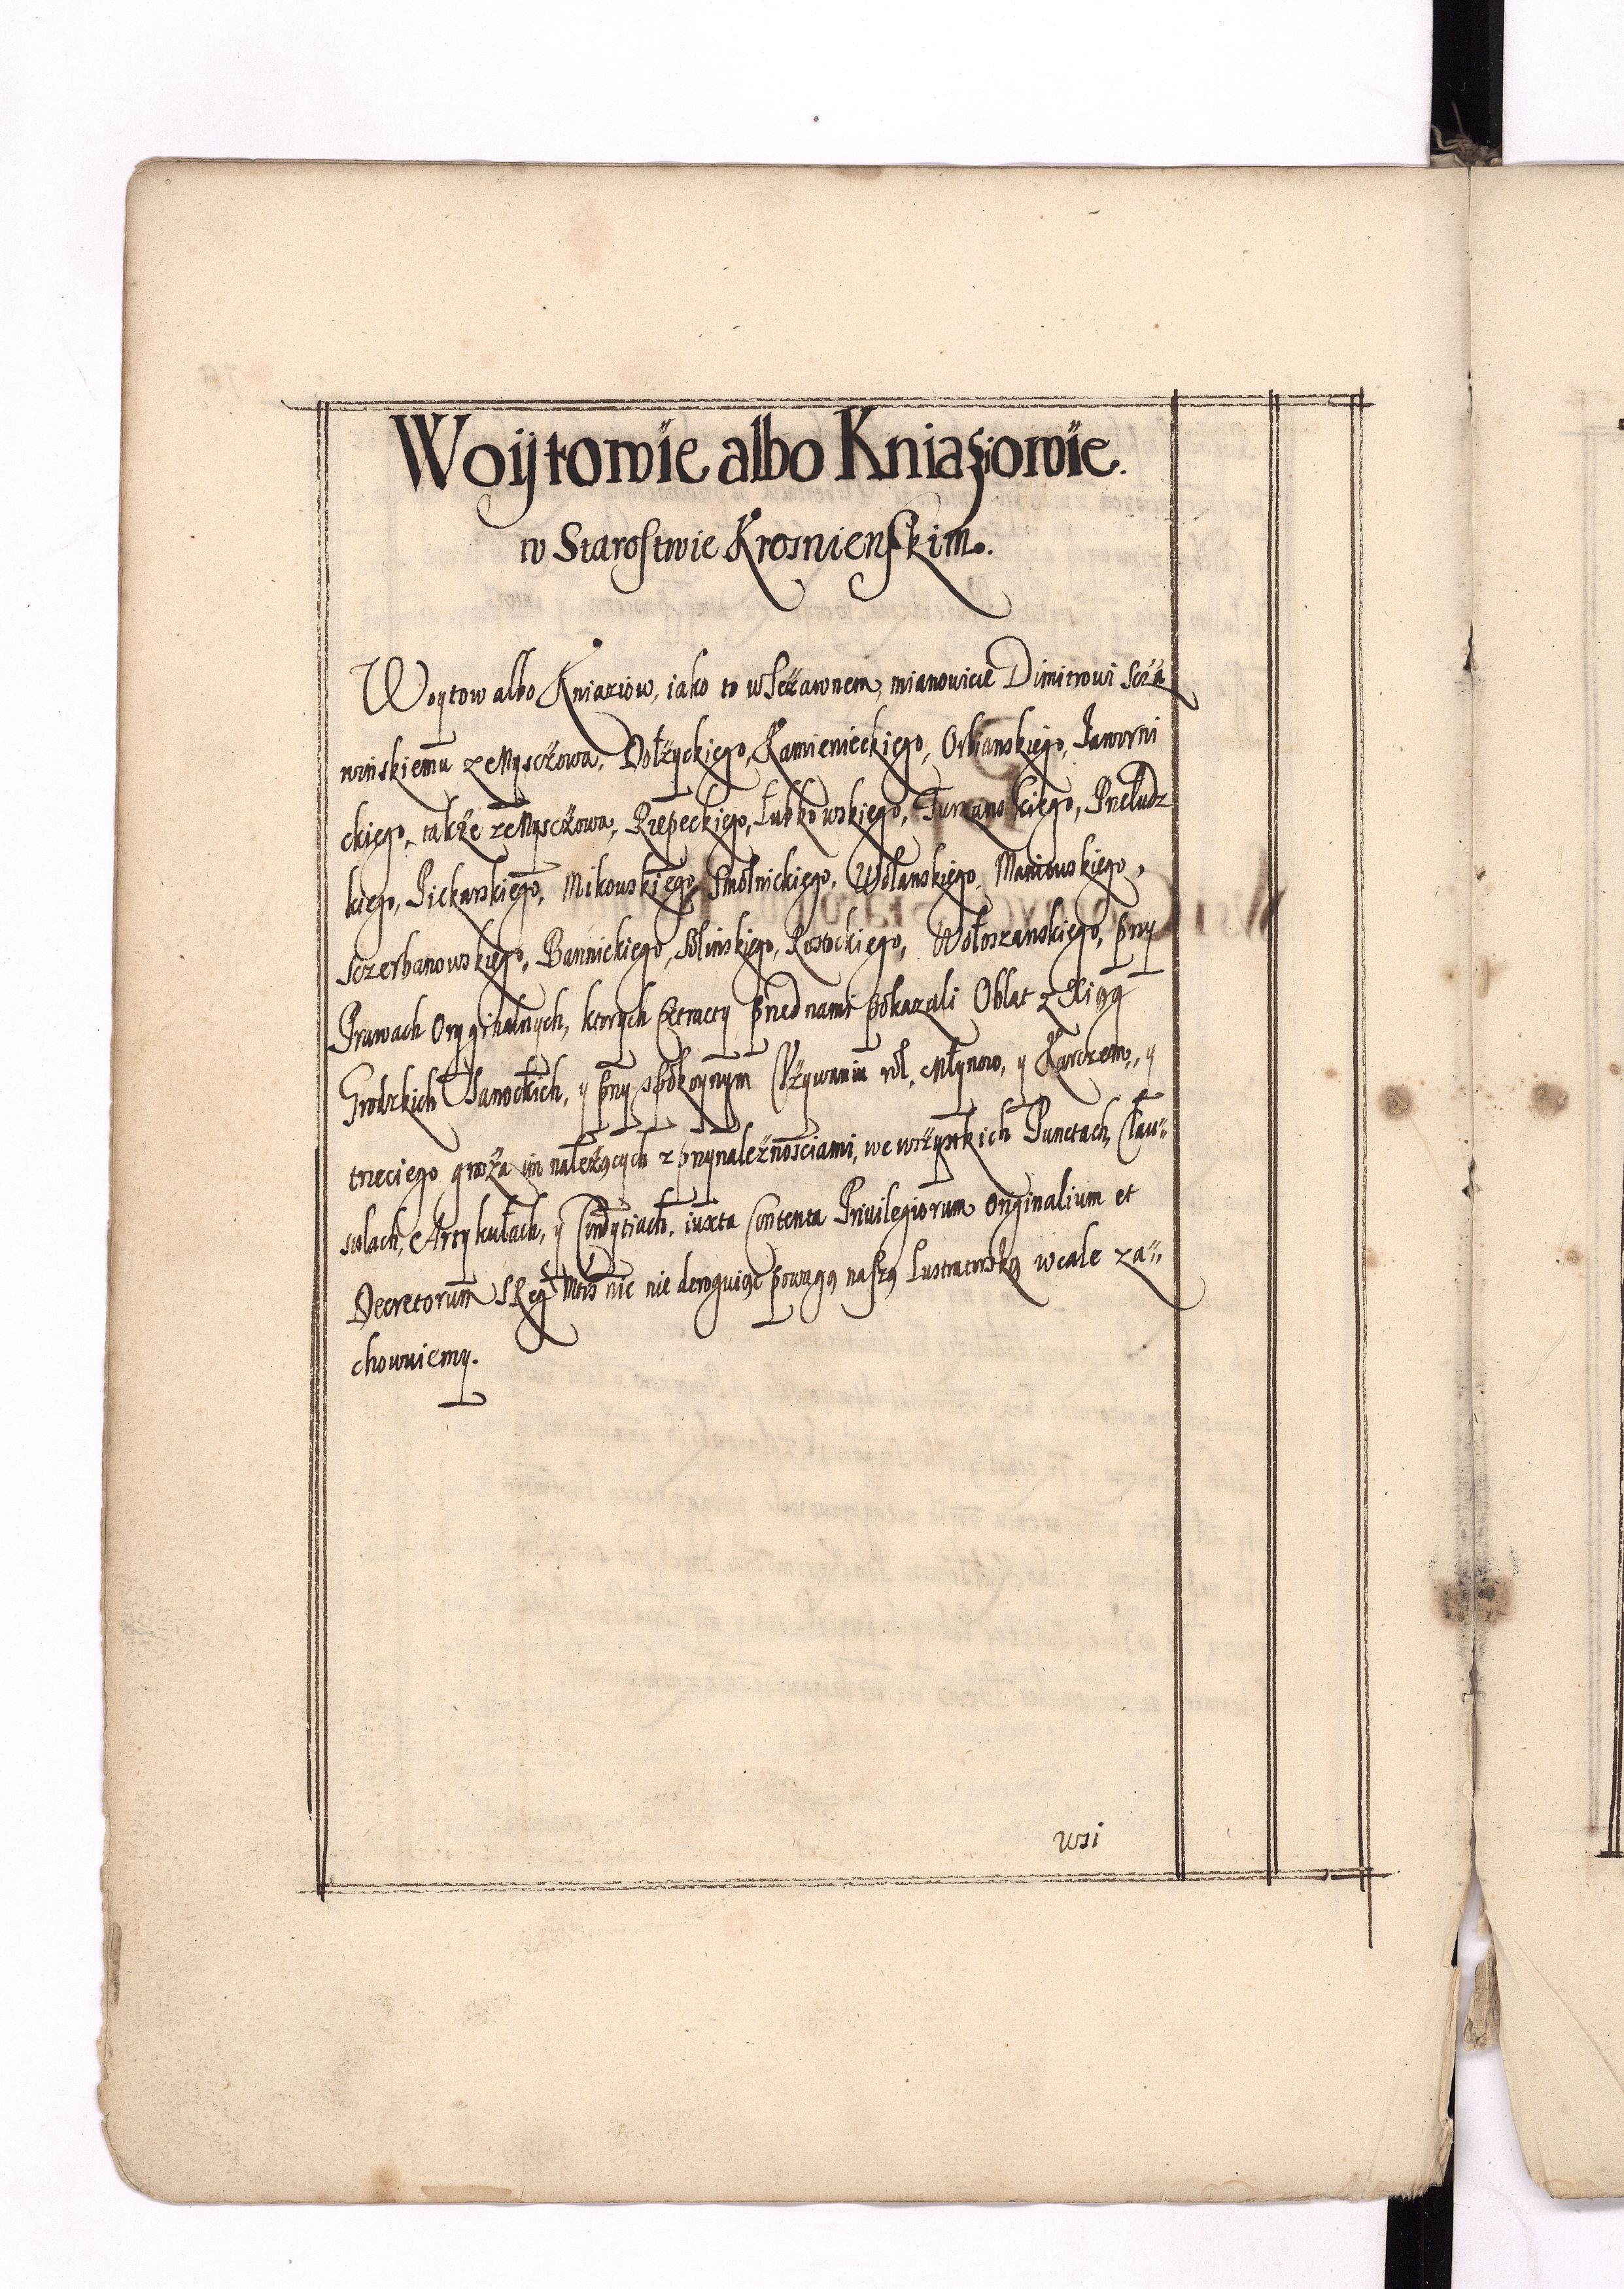 Woijtowie albo Kniaziowie.
w Starostwie Krosnienskim.
Woytow albo Kniaziow, iako to w Sczawnem, mianowicie Dimitrowi Scza
winskiemu z Mysczowa, Dołżyckiego, Kamienieckiego, Osłianskiego, Jaworni
ckiego, także z Mysczowa, Rzepeckiego, Łupkowskiego, Turzanskiego, Prełudz
kiego, Pickarskiego, Mikowskiego, Smolnickiego, Wolanskiego, Maniowskiego,
Sczerbanowskiego, Bannickiego, Solinskiego, Rostockiego, Wołoszanskiego, przy
Prawach Oryginalnych, ktorych Extracty przed nami pokazali Oblat z Xiąg
Grodzkich Sanockich, y przy spokoynym Używaniu rol, Młynow, y Karczem, y
trzeciego grosza im należących z przynależnosciami, we wszystkich Punctach, Clau„
sulach, Artykułach, y Condytiach, iuxta Contenta Priuilegiorum originalium et
Decretorum S Reg Mtis nic nie deroguiąc powagą naszą Lustratorską wcale za„
chowuiemy.
wsi